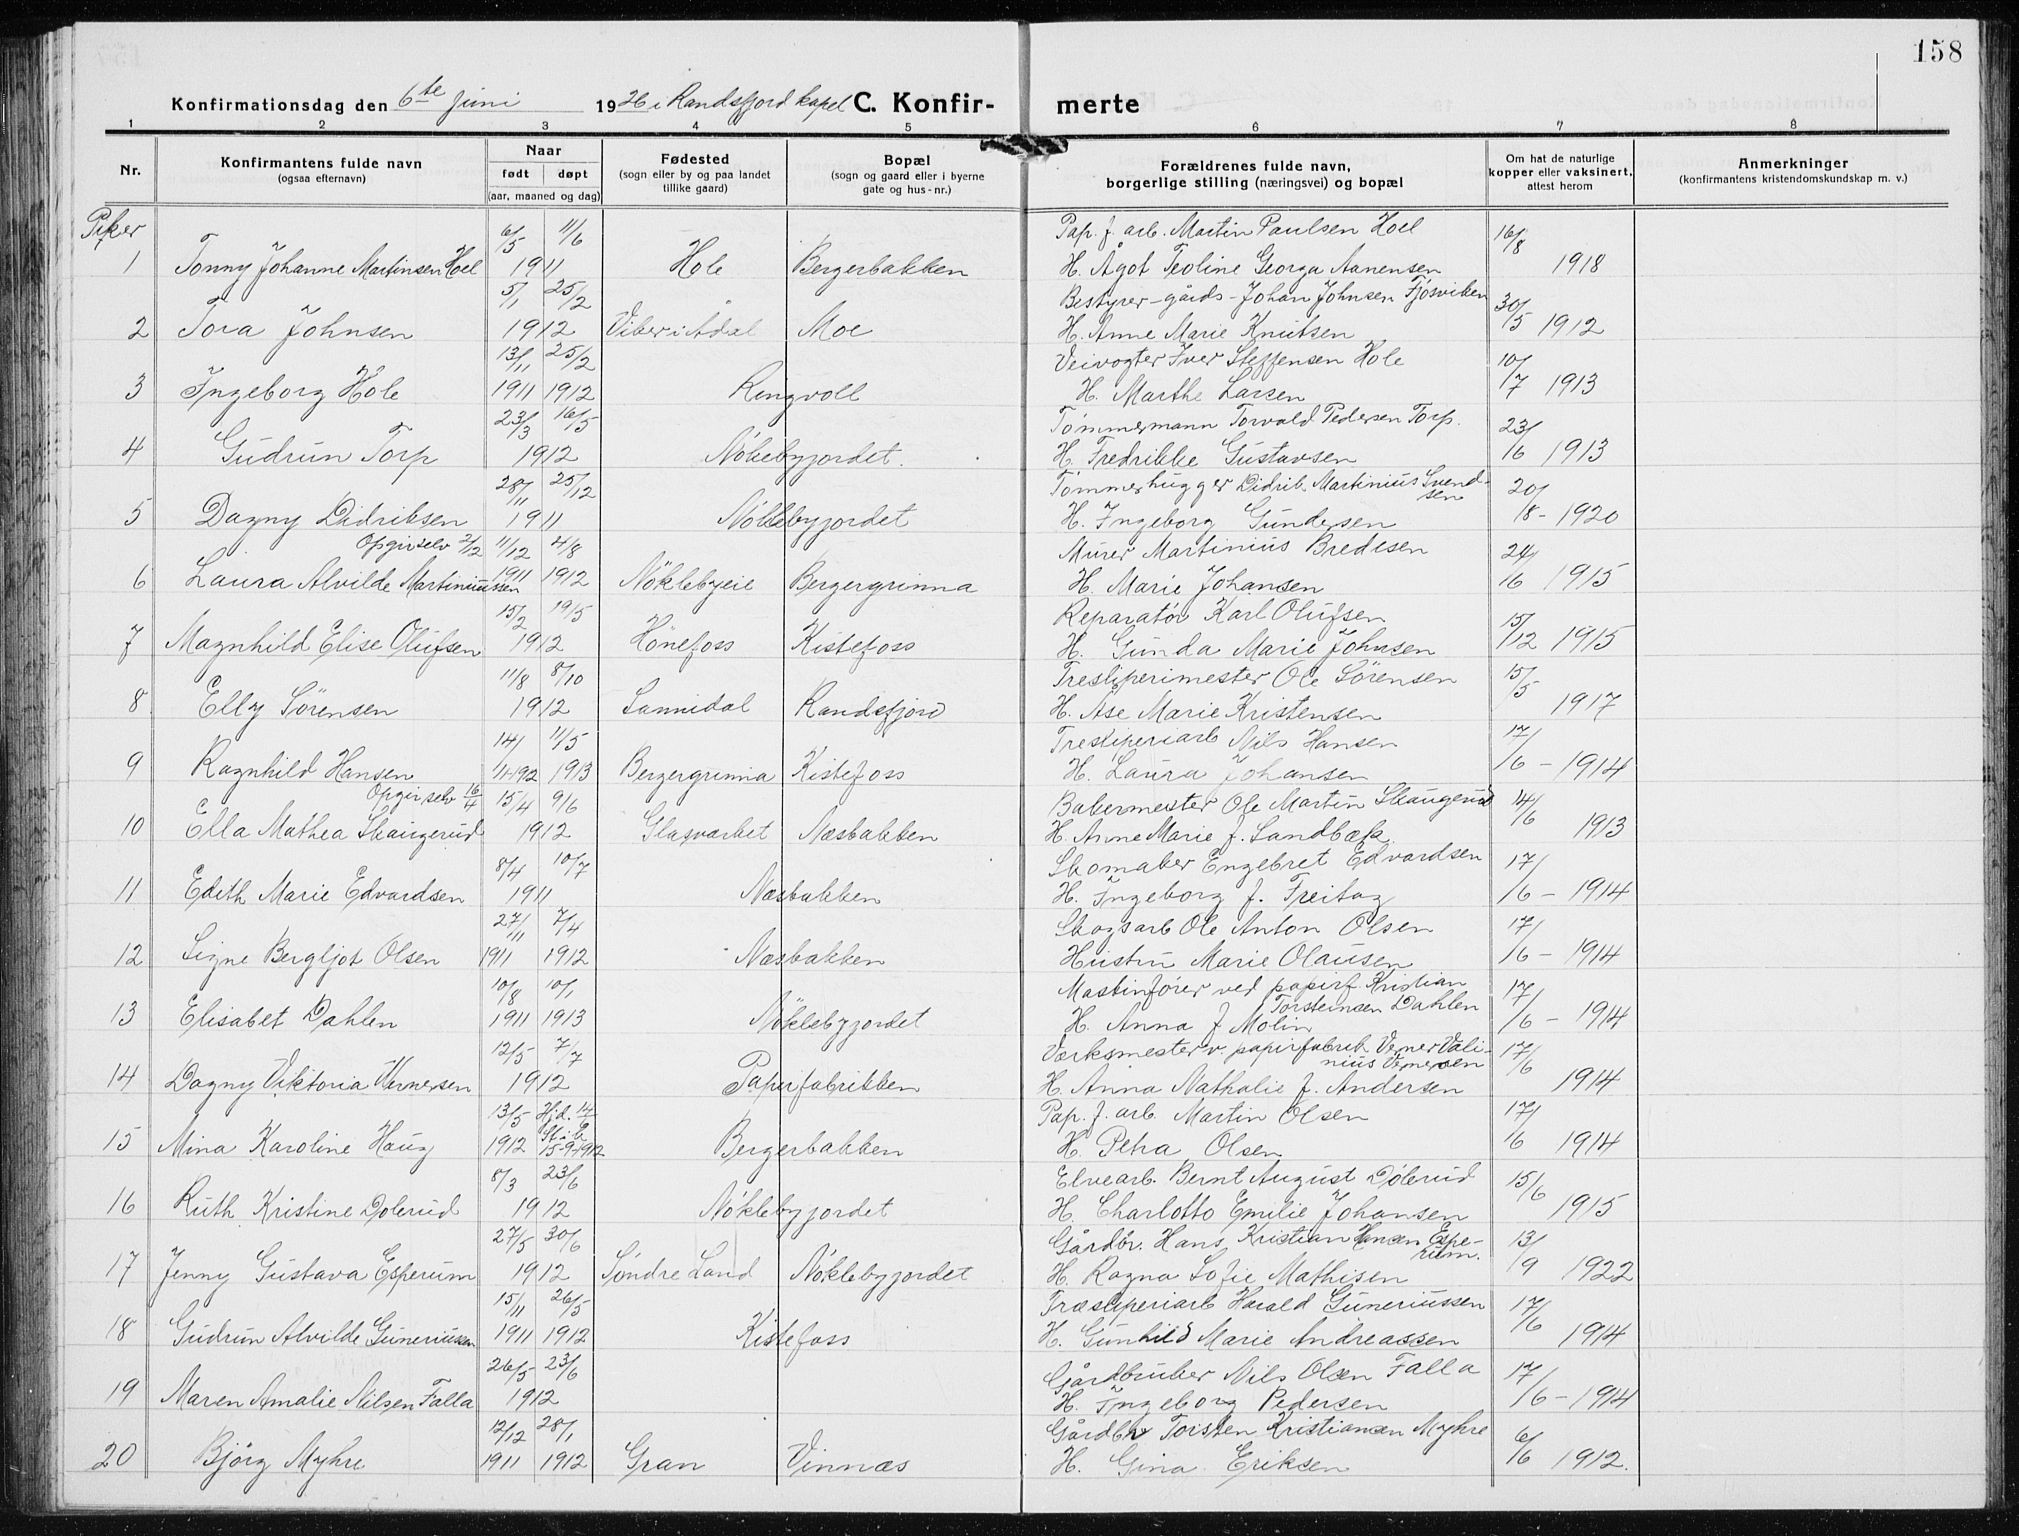 158
Konfirmationsdag den 6te Juni 1926 i Randsfjord kapel C. Konfir- merte
1 2 3 4 5 6 7 8
Nr. Konfirmantens fulde navn (ogsaa efternavn) Naar født døpt (aar, maaned og dag) Fødested (sogn eller by og paa landet tillike gaard) Bopæl (sogn og gaard eller i byerne gate og hus-nr.) Forældrenes fulde navn, borgerlige stilling (næringsvei) og bopæl Om hat de naturlige kopper eller vaksinert, attest herom Anmerkninger (konfirmantens kristendomskundskap m. v.)
Piker 6/5 11/6 Pap. f. arb. Martin Paulsen Hoel 16/8
1 Tonny Johanne Martinsen Hoel 1911 Hole Bergerbakken H. Ågot Teoline Georga Aanensen 1918
5/1 25/2 Bestyrer - gårds - Johan Johnsen Fjøsviken 30/5
2 Tora Johnsen 1912 Viker i Ådal Moe H. Anne Marie Knutsen 1912
13/11 25/2 Veivogter Iver Steffensen Hole 10/7
3 Ingeborg Hole 1911 1912 Ringvoll H. Marthe Larsen 1913
23/3 16/5 Tømmermann Torvald Pedersen Torp. 23/
4 Gudrun Torp 1912 Nøklebyjordet. H. Fredrikke Gustavsen 16 1913
28/11 25/12 Tømmerhugger Didrik Martinius Svendsen 20/
5 Dagny Didriksen 1911 Nøklebyjordet H. Ingeborg Gundersen 18 - 1920
Opgir selv 2/12 11/12 4/8 Murer Martinius Bredesen 24/
6 Laura Alvilde Martiniussen 1911 1912 Nøklebyeie Bergergrinna H. Marie Johansen 16 1915
15/2 19/5 Reparatør Karl Olufsen 15/
7 Magnhild Elise Olufsen 1912 Hønefoss Kistefoss H. Gunda Marie Johnsen 12 1915
11/8 8/10 Tresliperimester Ole Sørensen 15/5
8 Elly Sørensen 1912 Sannidal Randsfjord H. Åse Marie Kristensen 1917
14/ 11/5 Tresliperiarb Nils Hansen 17/
9 Ragnhild Hansen 1913 Bergergrinna Kistefoss H. Laura Johansen /6 - 1914
Opgir selv 16/4 15/4 9/6 Bakermester Ole Martin Skaugerud 14/6
10 Ella Mathea Skaugerud 1912 Glasværket Næsbakken H. Anne Marie f. Sandbæk 1913
8/4 10/7 Skomaker Engebret Edvardsen 17/
11 Edith Marie Edvardsen 1911 Næsbakken H. Ingeborg f. Freitag /6 - 1914
27/11 7/4 Skogsarb Ole Anton Olsen 17/
12 Signe Bergljot Olsen 1911 1912 Næsbakken Hustru Marie Olausen /6 - 1914
10/8 10/1 Maskinfører ved papirf. Kristian Torsteinsen Dahlen 17/
13 Elisabet Dahlen 1911 1913 Nøklebyjordet H. Anna f Molin /6 - 1914
12/5 7/7 Værksmester v. papirfabrik Verner Valinius Vernersen 17/6
14 Dagny Viktoria Wernersen 1912 Papirfabrikken H. Anna Nathalie f. Andersen 1914
13/5 Hjd. 14/ Pap. f. arb. Martin Olsen 17/
15 Mina Karoline Haug 1912 St. i k 15-9-1912 Bergerbakken H. Petra Olsen 16 1914
8/3 23/6 Elvearb. Bernt August Dølerud 15/6
16 Ruth Kristine Dølerud 1912 Nøklebyjordet H. Charlotto Emilie Johansen 1915
27/5 30/6 Gårdbr. Hans Kristian Hansen Esperum. 13/
17 Jenny Gustava Esperum 1912 Søndre Land Nøklebyjordet H. Ragna Sofie Mathisen /9 1922
15/11 26/5 Træsliperiarb Harald Guneriussen 17/6
18 Gudrun Alvilde Guneriussen 1911 1912 Kistefoss H. Gunhild Marie Andreassen 1914
26/5 23/6 Gårdbruker Nils Olsen Falla 17/
19 Maren Amalie Nilsen Falla 1912 H. Ingeborg Pedersen /6 - 1914
12/12 28/1 Gårdbr Torsten Kristiansen Myhre 6/
20 Bjørg Myhre 1911 1912 Gran Vinnæs H. Gina Eriksen 16 1912.